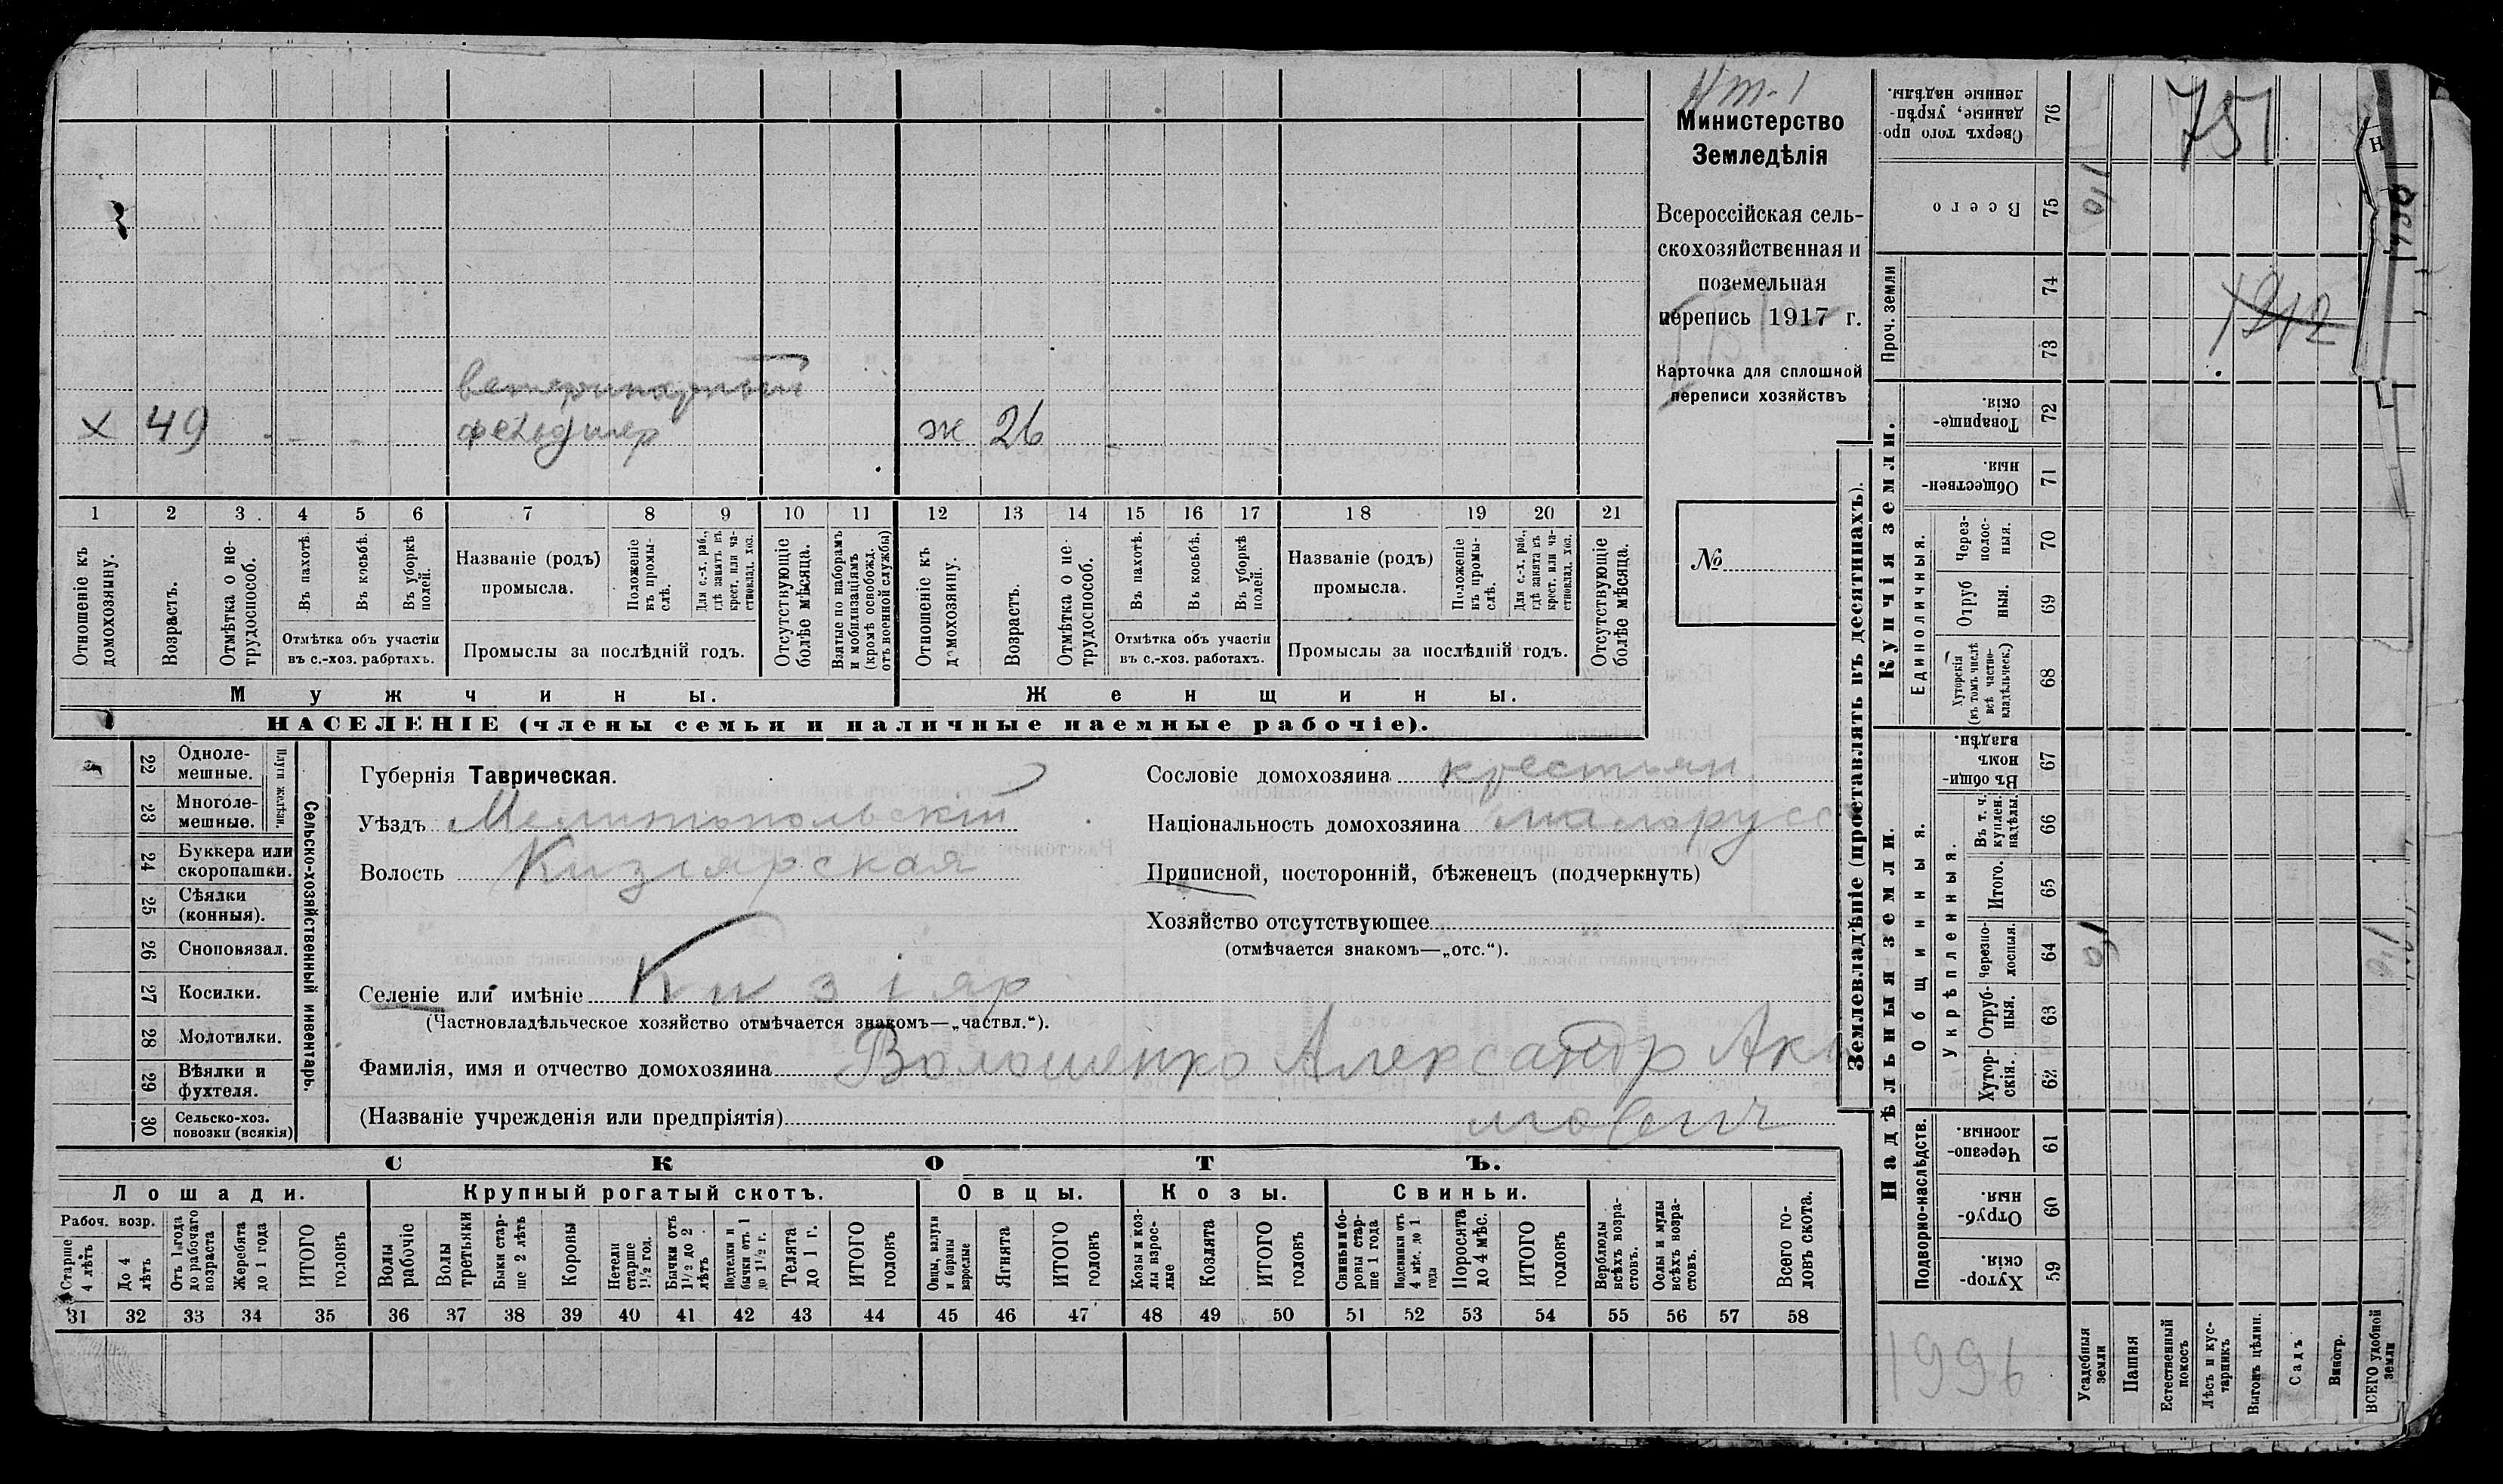 Министерство
Земледѣлія
Всероссійская сель-
скохозяйственная и
поземельная
перепись 1917 г.
Карточка для сплошной
переписи хозяйствъ
№
ветеринарный
х 49 фельдшер ж 26
1 2 3 4 5 6 7 8 9 10 11 12 13 14 15 16 17 18 19 20 21
Отношеніе къ домохозяину.
Возрастъ.
Отмѣтка о не-трудоспособ.
Въ пахотѣ.
Въ косьбѣ.
Въ уборкѣ полей.
Отмѣтка объ участіи
въ с.-хоз. работахъ.
Названіе (родъ)
промысла.
Положеніе въ промы-слѣ.
Для с.-х. раб., гдѣ занятъ въ крест. или ча-стновлад. хоз.
Промыслы за послѣдній годъ.
Отсутствующіе болѣе мѣсяца.
Взятые по наборамъ и мобилизаціямъ (кромѣ освобожд. отъ военной службы)
Отношеніе къ домохозяину.
Возрастъ.
Отмѣтка о не-трудоспособ.
Въ пахотѣ.
Въ косьбѣ.
Въ уборкѣ полей.
Отмѣтка объ участіи
въ с.-хоз. работахъ.
Названіе (родъ)
промысла.
Положеніе въ промы-слѣ.
Для с.-х. раб., гдѣ занята въ крест. или ча-стновлад. хоз.
Промыслы за послѣдній годъ.
Отсутствующіе болѣе мѣсяца.
Мужчины. Женщины.
НАСЕЛЕНІЕ (члены семьи и наличные наемные рабочіе).
Сельско-хозяйственный инвентарь.
Плуги желѣзн.
22 Одноле-мешные.
23 Многоле-мешные.
24 Буккера или скоропашки.
25 Сѣялки (конныя).
26 Сноповязал.
27 Косилки.
28 Молотилки.
29 Вѣялки и фухтеля.
30 Сельско-хоз. повозки (всякія)
Губернія Таврическая.
Уѣздъ Мелитопольскій
Волость Кизіярская
Селеніе или имѣніе Кизіяр
(Частновладѣльческое хозяйство отмѣчается знакомъ—„частвл.“).
Фамилія, имя и отчество домохозяина Волошенко Александр Аки
(Названіе учрежденія или предпріятія) мович
Сословіе домохозяина крестьян
Національность домохозяина малорусс
Приписной, посторонній, бѣженецъ (подчеркнуть)
Хозяйство отсутствующее
(отмѣчается знакомъ—„отс.“).
СКОТЪ.
Лошади. Крупный рогатый скотъ. Овцы. Козы. Свиньи.
Рабоч. возр.
Старше 4 лѣтъ
До 4 лѣтъ
Отъ 1 года до рабочаго возраста
Жеребята до 1 года
ИТОГО головъ
Волы рабочіе
Волы третьяки
Быки стар-ше 2 лѣтъ
Коровы
Нетели старше 1½ год.
Бычки отъ 1½ до 2 лѣтъ
Подтелки и бычки отъ 1 до 1½ г.
Телята до 1 г.
ИТОГО головъ
Овцы, валухи и бараны взрослые
Ягнята
ИТОГО головъ
Козы и коз-лы взрос-лые
Козлята
ИТОГО головъ
Свиньи и бо-ровы стар-ше 1 года
Подсвинки отъ 4 мѣс. до 1 года
Поросята до 4 мѣс.
ИТОГО головъ
Верблюды всѣхъ возра-стовъ.
Ослы и мулы всѣхъ возра-стовъ.
Всего го-ловъ скота.
31 32 33 34 35 36 37 38 39 40 41 42 43 44 45 46 47 48 49 50 51 52 53 54 55 56 57 58
Землевладѣніе (проставлять въ десятинахъ).
Надѣльныя земли. Купчія земли. Проч. земли
Подворно-наслѣдств.
Общинныя.
Укрѣпленныя.
Единоличныя.
Сверхъ того про-данные, укрѣп-ленные надѣлы. 76
Всего 75
74
73
Товарище-скія. 72
Обществен-ныя. 71
Через-полос-ныя. 70
Отруб ныя. 69
Хуторскія (въ томъ числѣ всѣ частно-владѣльческ.) 68
Въ общи-номъ владѣн. 67
Въ т. ч. куплен. надѣлы. 66
Итого. 65
Черезпо-лосныя. 64
Отруб-ныя. 63
Хутор-скія. 62
Черезпо-лосныя. 61
Отруб-ныя. 60
Хутор-скія. 59
Усадебныя земли
Пашня
Естественный покосъ
Лѣсъ и кус-тарникъ
Выгонъ цѣлин.
Садъ
Виногр.
ВСЕГО удобной земли
751
1996